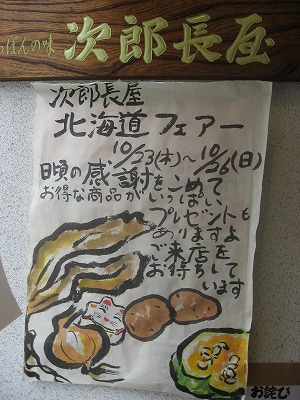 っぽんの味 次郎長屋
次郎長屋
北海道フェアー
10/23(木)〜10/26(日)
日頃の感謝をこめて
お得な商品がいっぱい
プレゼントも
ありますよ
ご来店を
お待ちして
います
お詫び